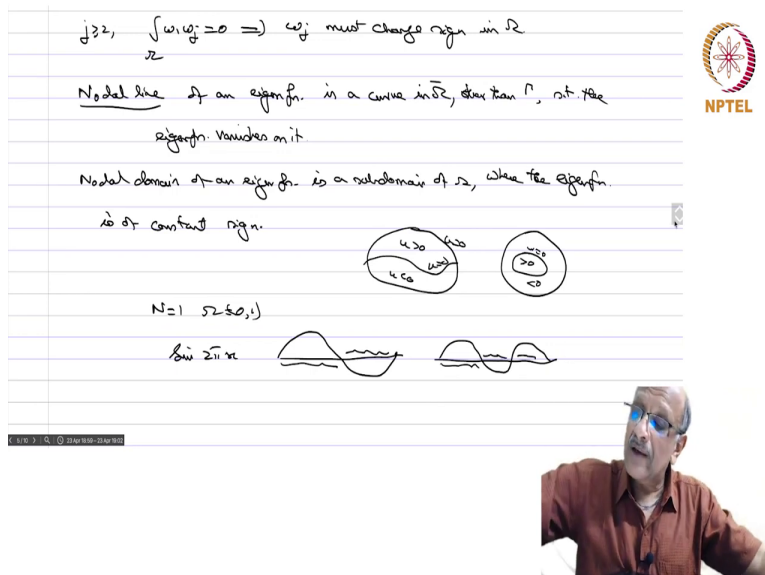 j≥2, ∫_Ω w₁ wⱼ = 0 ⇒ wⱼ must change sign in Ω
Nodal line of an eigenfn. is a curve in Ω̄, other than Γ, s.t. the
eigenfn. vanishes on it.
Nodal domain of an eigenfn. is a subdomain of Ω, where the eigenfn.
is of constant sign.
u>0 u=0 u<0
u=0 >0 <0
N=1 Ω=(0,1)
Sin 2πx
NPTEL
5/10 23 Apr 18:59 - 23 Apr 19:02